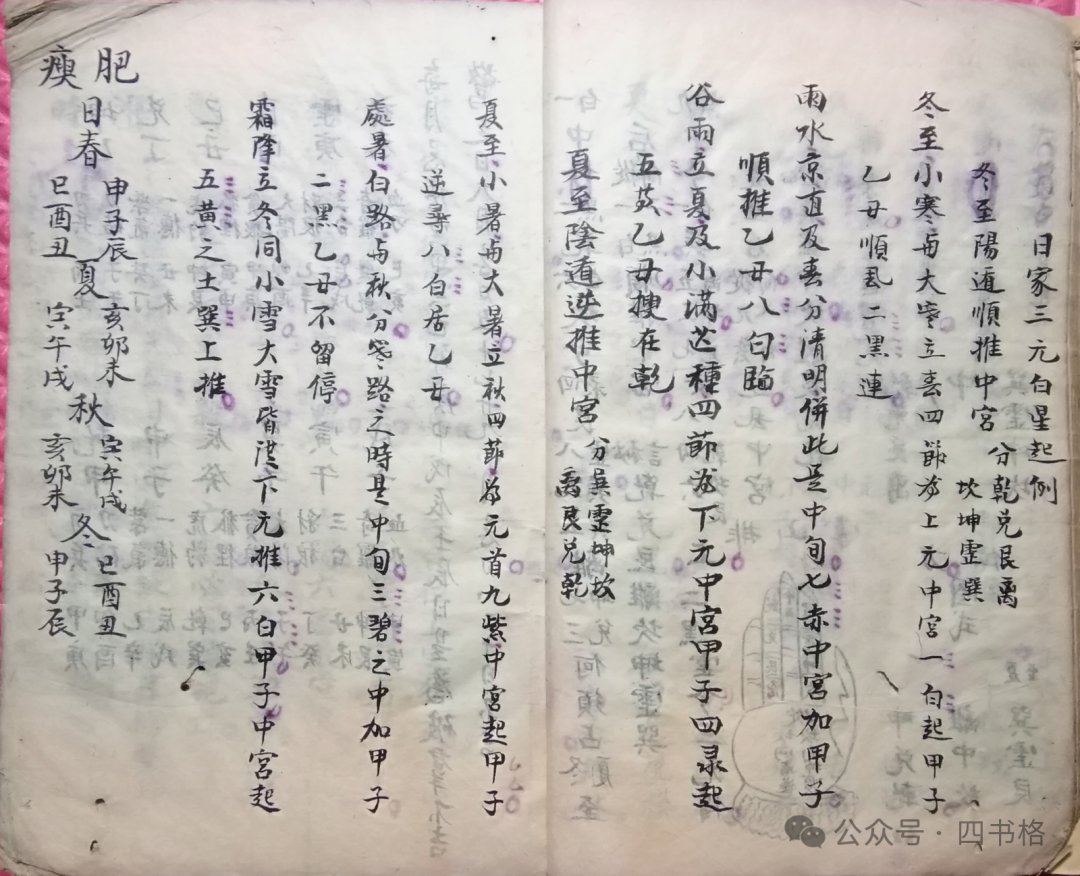 日家三元白星起例
冬至陽遁順推中宮 分乾兑艮离
坎坤震巽
冬至小寒與大寒立春四節為上元中宮一白起甲子
乙丑順乱二黑連
雨水京直及春分清明併此是中旬七赤中宮加甲子
順推乙丑八白臨
谷雨立夏及小滿芒種四節為下元中宮甲子四录起
五黄乙丑搜在乾
夏至陰遁逆推中宮 分巽震坤坎
离艮兑乾
夏至小暑与大暑立秋四節為元首九紫中宮起甲子
逆尋八白居乙丑
處暑白路与秋分寒路之時是中旬三碧之中加甲子
二黑乙丑不留停
霜降立冬同小雪大雪皆從下元推六白甲子中宮起
五黄之土巽上推
肥瘦
日春 甲子辰 巳酉丑 夏 亥卯未 寅午戌 秋 寅午戌 亥卯未 冬 巳酉丑 甲子辰
公众号·四书格